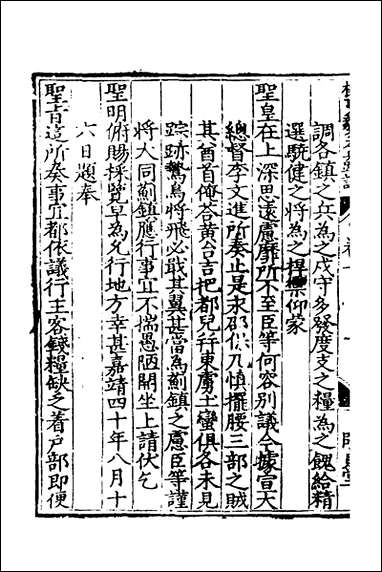 調各鎮之兵為之戍守多發度支之糧為之餽給精
選驍健之將為之捍禦仰蒙
聖皇在上深思遠慮靡所不至臣等何容別議今據宣大
總督李文進所奏止是求部係乃慎擺腰三部之賊
其酋首俺荅黃台吉把都兒行東虜土蠻俱各未見
踪跡鷙鳥將飛必戢其翼甚當為薊鎮之慮臣等謹
將大同薊鎮應行事宜不揣愚陋開坐上請伏乞
聖明俯賜採覽早為允行地方幸甚嘉靖四十年八月十
六日題奉
聖旨這所奏事宜都依議行主客錢糧缺乏着戶部即便